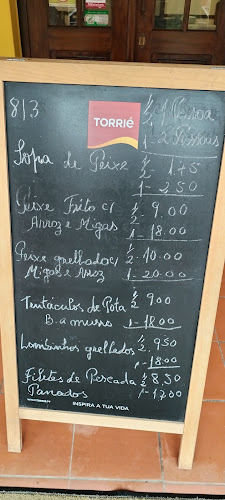 8/3
TORRIÉ
½ - 1 Pessoa
1 - 2 Pessoas
Sopa de Peixe ½ - 1 75
1 - 2 50
Peixe Frito c/ ½ - 9.00
Arroz e Migas 1 - 18.00
Peixe grelhado c/ ½ - 10.00
Migas e Arroz 1 - 20.00
Tentáculos de Pota ½ 900
B. a murro 1 - 18.00
Lombinhos grelhados ½ 950
1 - 18.00
Filetes de Pescada ½ 8,50
Panados 1 - 17,00
INSPIRA A TUA VIDA